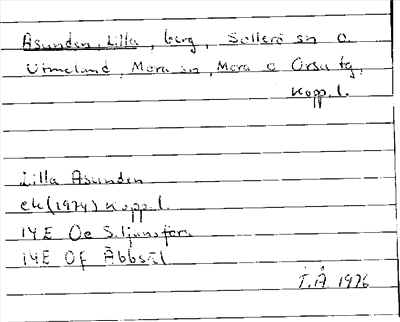 Åsunden, Lilla, berg, Sollerö sn o
Utmeland, Mora sn, Mora o Orsa tg,
Kopp. l.
Lilla Åsunden
ek (1974) Kopp. l.
14E Oe S. Ljunsfors
14E Of Äbbsäl
T.Å 1976